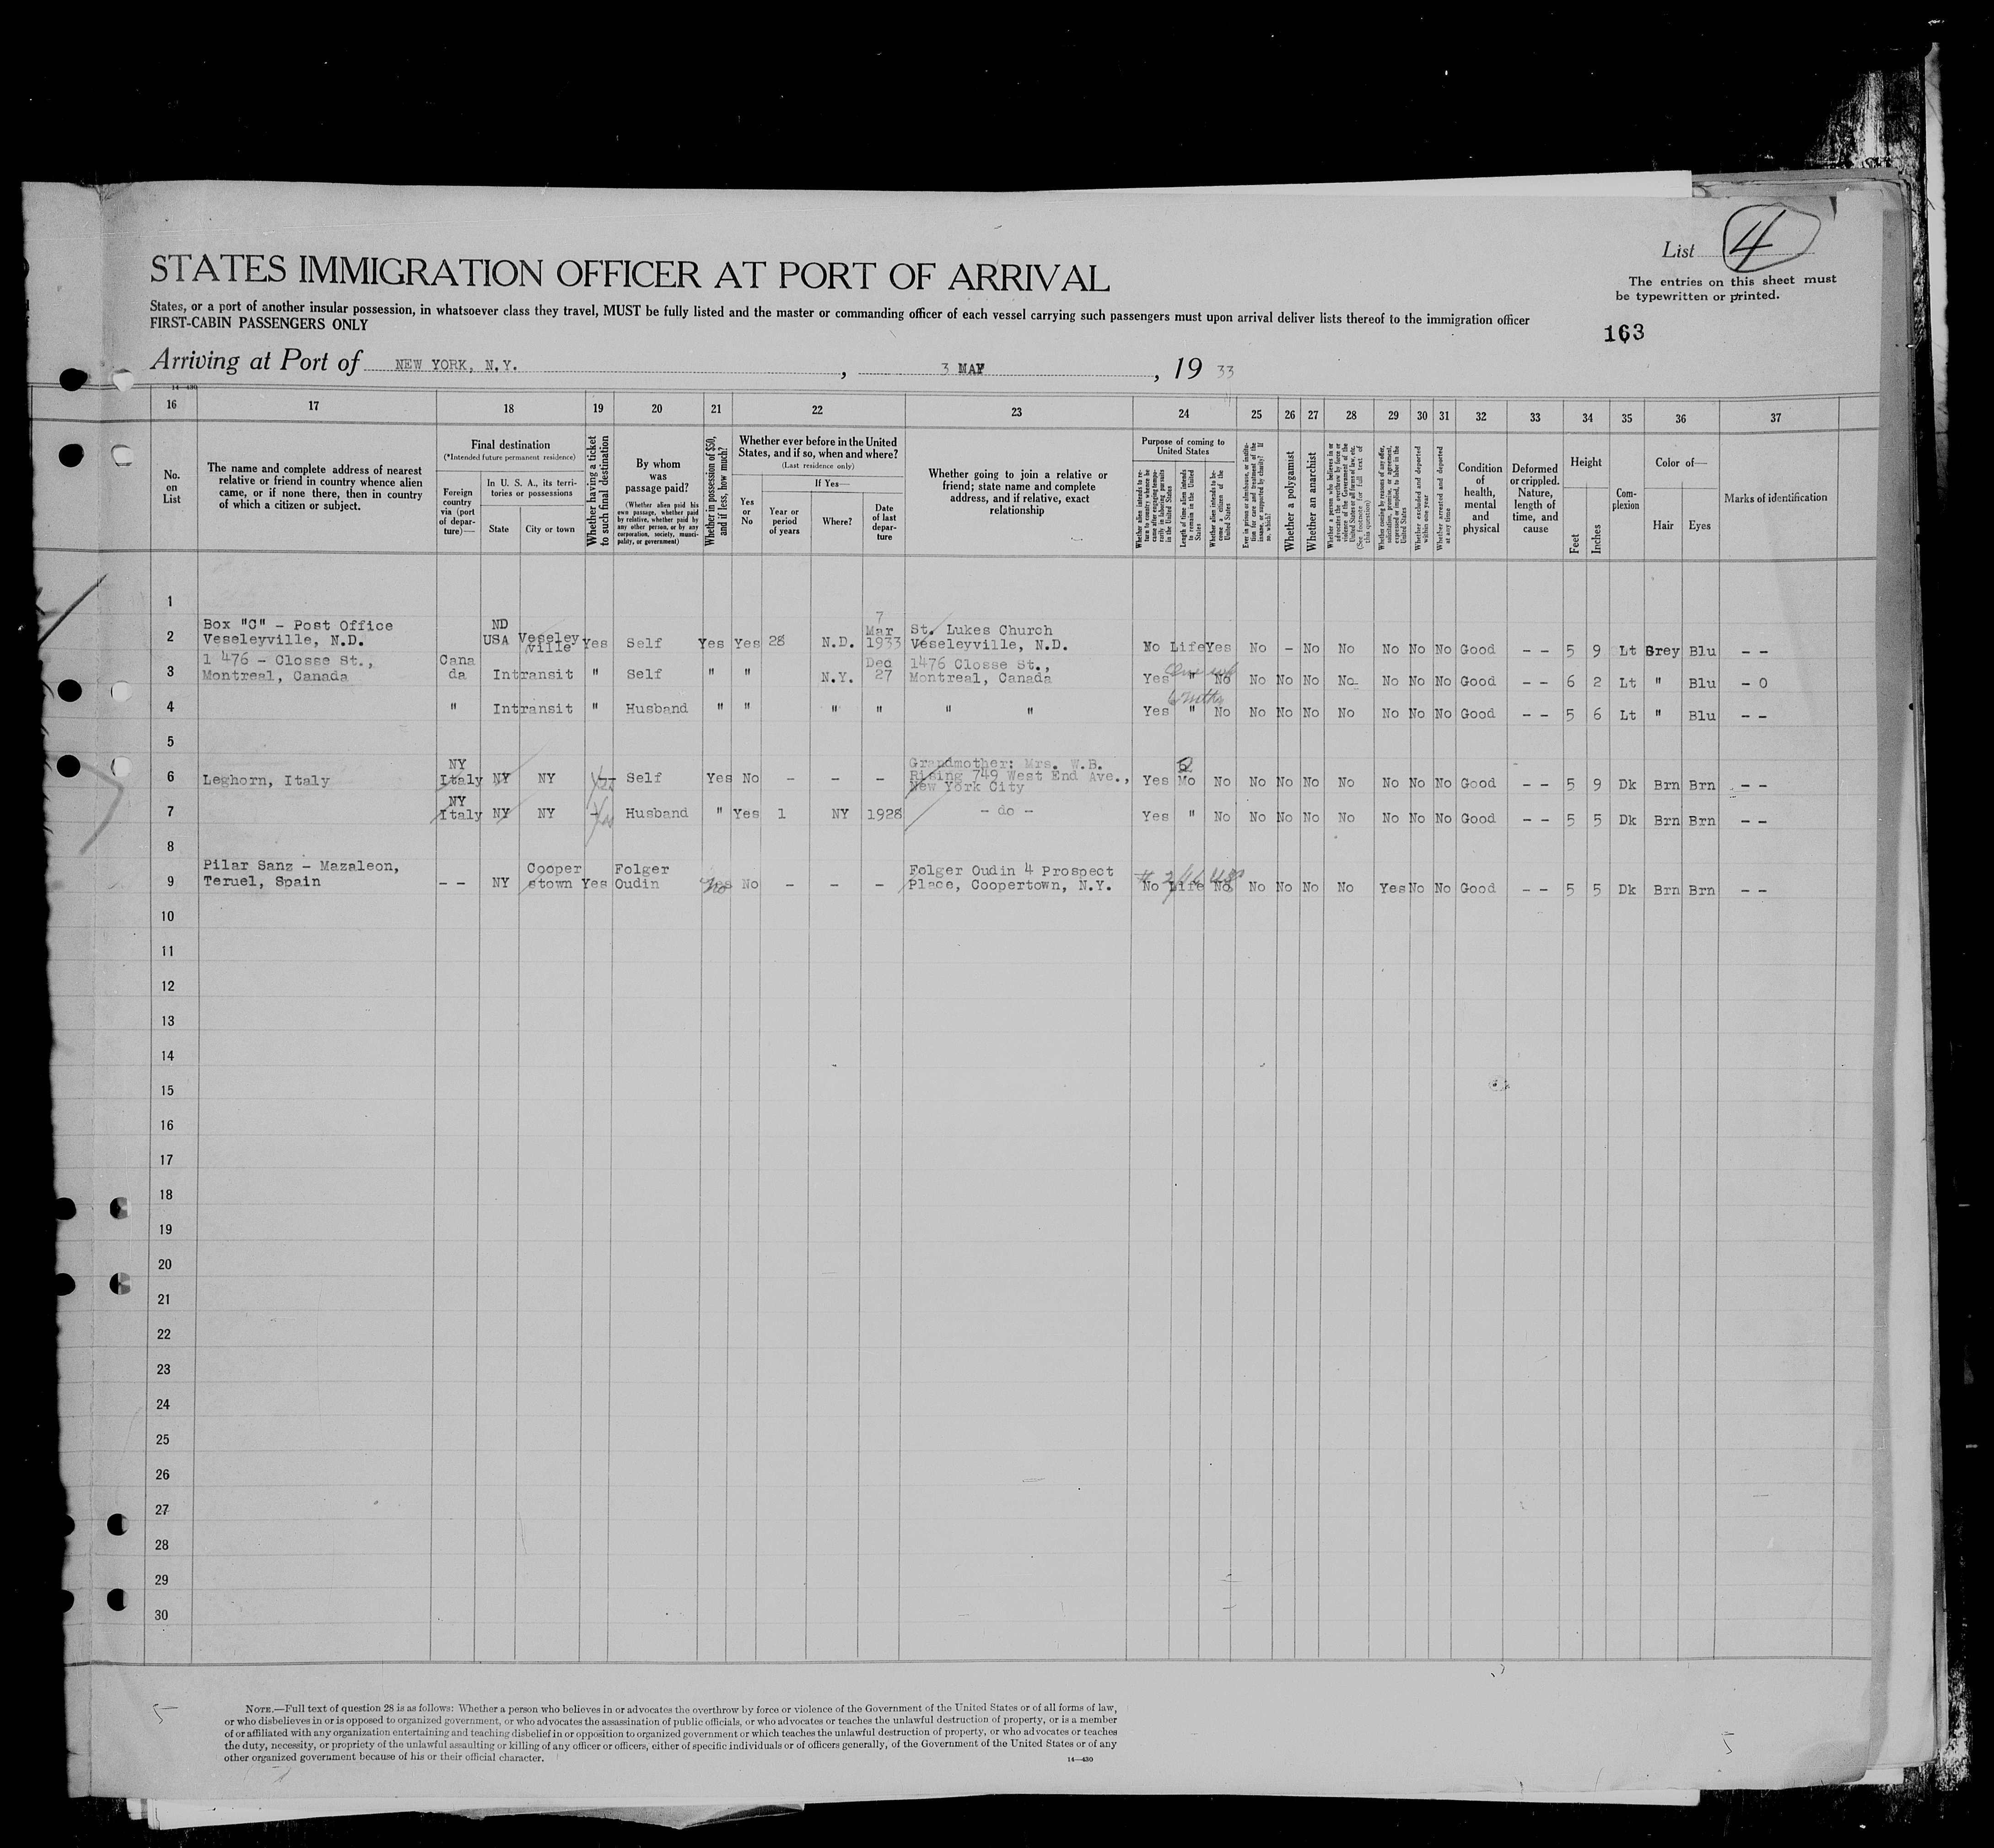 List 4
STATES IMMIGRATION OFFICER AT PORT OF ARRIVAL
The entries on this sheet must
be typewritten or printed.
States, or a port of another insular possession, in whatsoever class they travel, MUST be fully listed and the master or commanding officer of each vessel carrying such passengers must upon arrival deliver lists thereof to the immigration officer
FIRST-CABIN PASSENGERS ONLY
163
Arriving at Port of NEW YORK, N.Y. , 3 MAY , 19 33
14-430
16 17 18 19 20 21 22 23 24 25 26 27 28 29 30 31 32 33 34 35 36 37
No. on List
The name and complete address of nearest
relative or friend in country whence alien
came, or if none there, then in country
of which a citizen or subject.
Final destination
(*Intended future permanent residence)
Foreign country via (port of departure)—
In U. S. A., its territories or possessions
State
City or town
Whether having a ticket to such final destination
By whom was passage paid?
(Whether alien paid his own passage, whether paid by relative, whether paid by any other person, or by any corporation, society, municipality, or government)
Whether in possession of $50, and if less, how much?
Whether ever before in the United States, and if so, when and where?
(Last residence only)
Yes or No
If Yes—
Year or period of years
Where?
Date of last departure
Whether going to join a relative or
friend; state name and complete
address, and if relative, exact
relationship
Purpose of coming to United States
Whether alien intends to return to country whence he came after engaging temporarily in laboring pursuits in the United States
Length of time alien intends to remain in the United States
Whether alien intends to become a citizen of the United States
Ever in prison or almshouse, or institution for care and treatment of the insane, or supported by charity? If so, which?
Whether a polygamist
Whether an anarchist
Whether a person who believes in or advocates the overthrow by force or violence of the Government of the United States or all forms of law, etc. (See footnote for full text of this question)
Whether coming by reason of any offer, solicitation, promise, or agreement, expressed or implied, to labor in the United States
Whether excluded and deported within one year
Whether arrested and deported at any time
Condition of health, mental and physical
Deformed or crippled. Nature, length of time, and cause
Height
Feet
Inches
Complexion
Color of—
Hair
Eyes
Marks of identification
1
2 Box "C" - Post Office Veseleyville, N.D. ND USA Veseley ville Yes Self Yes Yes 28 N.D. 7 Mar 1933 St. Lukes Church Veseleyville, N.D. No Life Yes No - No No No No No Good - - 5 9 Lt Grey Blu - -
3 1 476 - Closse St., Montreal, Canada Cana da Intransit " Self " " N.Y. Dec 27 1476 Closse St., Montreal, Canada Yes " No No No No No No No No Good - - 6 2 Lt " Blu - 0
4 " Intransit " Husband " " " " " " Yes " No No No No No No No No Good - - 5 6 Lt " Blu - -
5
6 Leghorn, Italy NY Italy NY NY Yes Self Yes No - - - Grandmother: Mrs. W.B. Rising 749 West End Ave., New York City Yes Mo No No No No No No No No Good - - 5 9 Dk Brn Brn - -
7 NY Italy NY NY Yes Husband " Yes 1 NY 1928 - do - Yes " No No No No No No No No Good - - 5 5 Dk Brn Brn - -
8
9 Pilar Sanz - Mazaleon, Teruel, Spain - - NY Cooper stown Yes Folger Oudin No No - - - Folger Oudin 4 Prospect Place, Coopertown, N.Y. No Life No No No No No Yes No No Good - - 5 5 Dk Brn Brn - -
10
11
12
13
14
15
16
17
18
19
20
21
22
23
24
25
26
27
28
29
30
NOTE.—Full text of question 28 is as follows: Whether a person who believes in or advocates the overthrow by force or violence of the Government of the United States or of all forms of law,
or who disbelieves in or is opposed to organized government, or who advocates the assassination of public officials, or who advocates or teaches the unlawful destruction of property, or is a member
of or affiliated with any organization entertaining and teaching disbelief in or opposition to organized government or which teaches the unlawful destruction of property, or who advocates or teaches
the duty, necessity, or propriety of the unlawful assaulting or killing of any officer or officers, either of specific individuals or of officers generally, of the Government of the United States or of any
other organized government because of his or their official character.
14—430
5
5